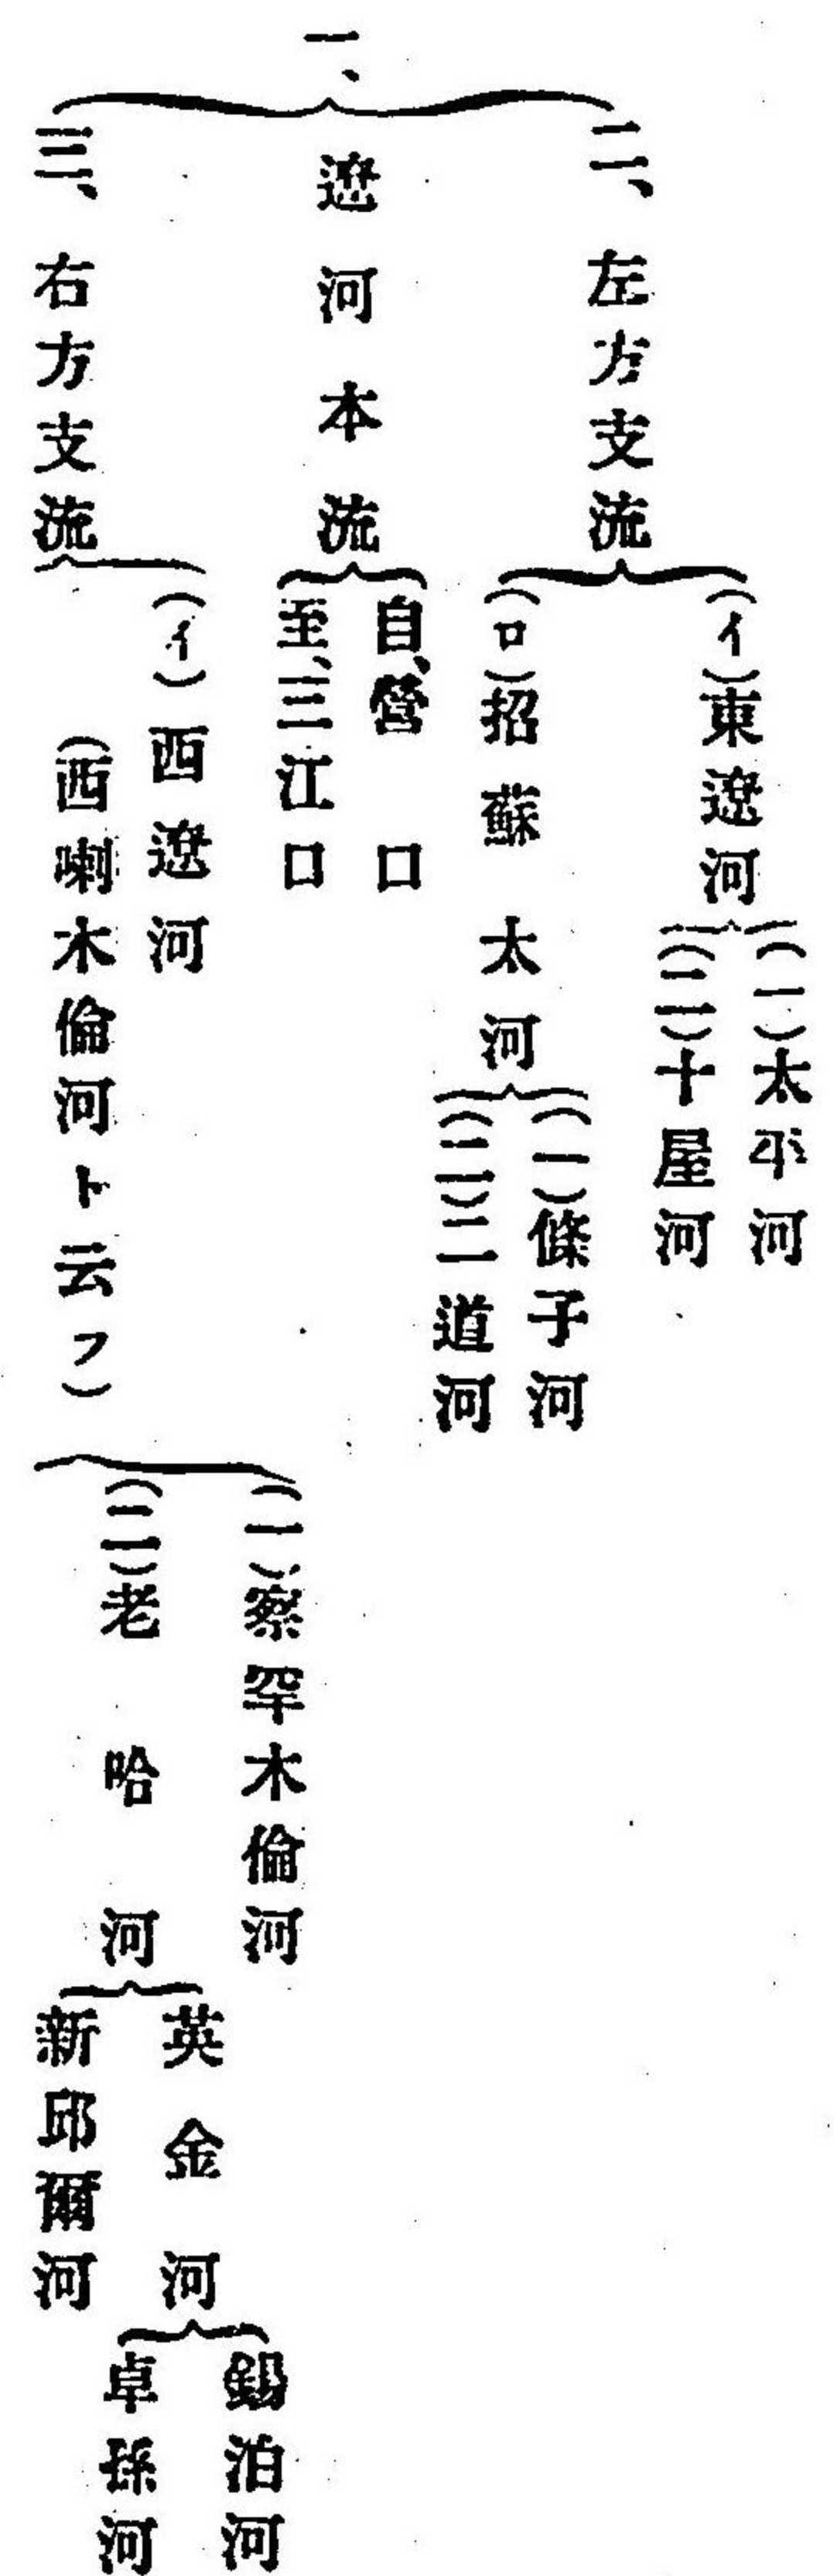 一、
二、左方支流
(イ)東遼河
(一)太平河
(二)十屋河
(ロ)招蘇太河
(一)條子河
(二)二道河
遼河本流
自、營口
至、三江口
三、右方支流
(イ)西遼河
(西喇木倫河ト云フ)
(一)察罕木倫河
(二)老哈河
英金河
錫泊河
卓孫河
新邱爾河